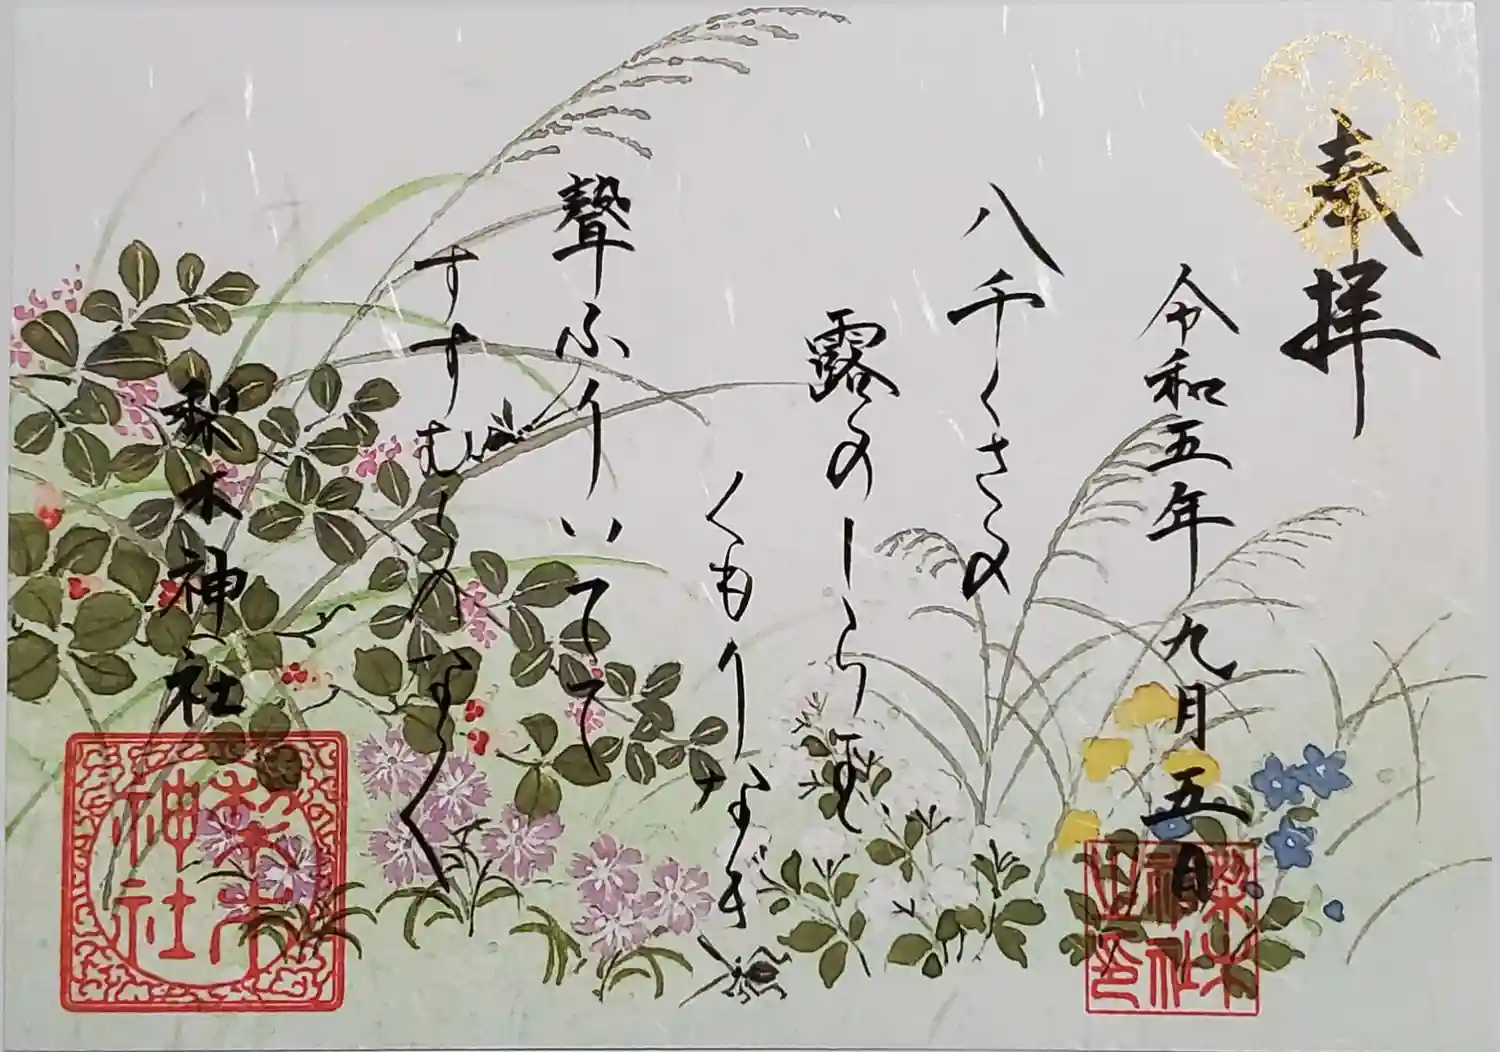 奉拝
令和五年九月五日
八千くさの
露のしら玉
くもりなき
聲ふりいてて
すすむしのなく
梨木神社
梨木神社
梨木神社之印